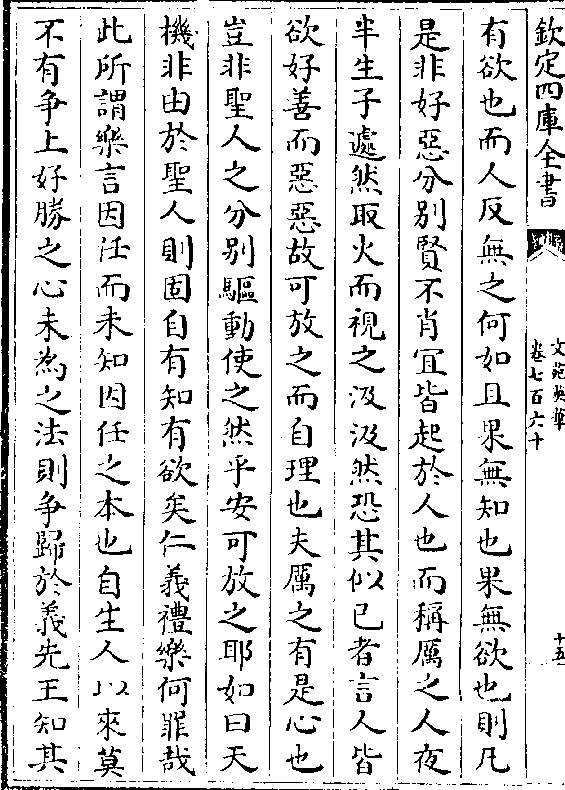 欽定四庫全書
文苑英華
卷七百六十
十五
有欲也而人反無之何如且果無知也果無欲也則凡
是非好惡分别賢不肖冝皆起於人也而稱厲之人夜
半生子遽然取火而視之汲汲然恐其似己者言人皆
欲好善而惡惡故可放之而自理也夫厲之有是心也
豈非聖人之分别驅動使之然乎安可放之耶如曰天
機非由於聖人則固自有知有欲矣仁義禮樂何罪哉
此所謂樂言因任而未知因任之本也自生人以來莫
不有争上好勝之心未為之法則争歸於義先王知其